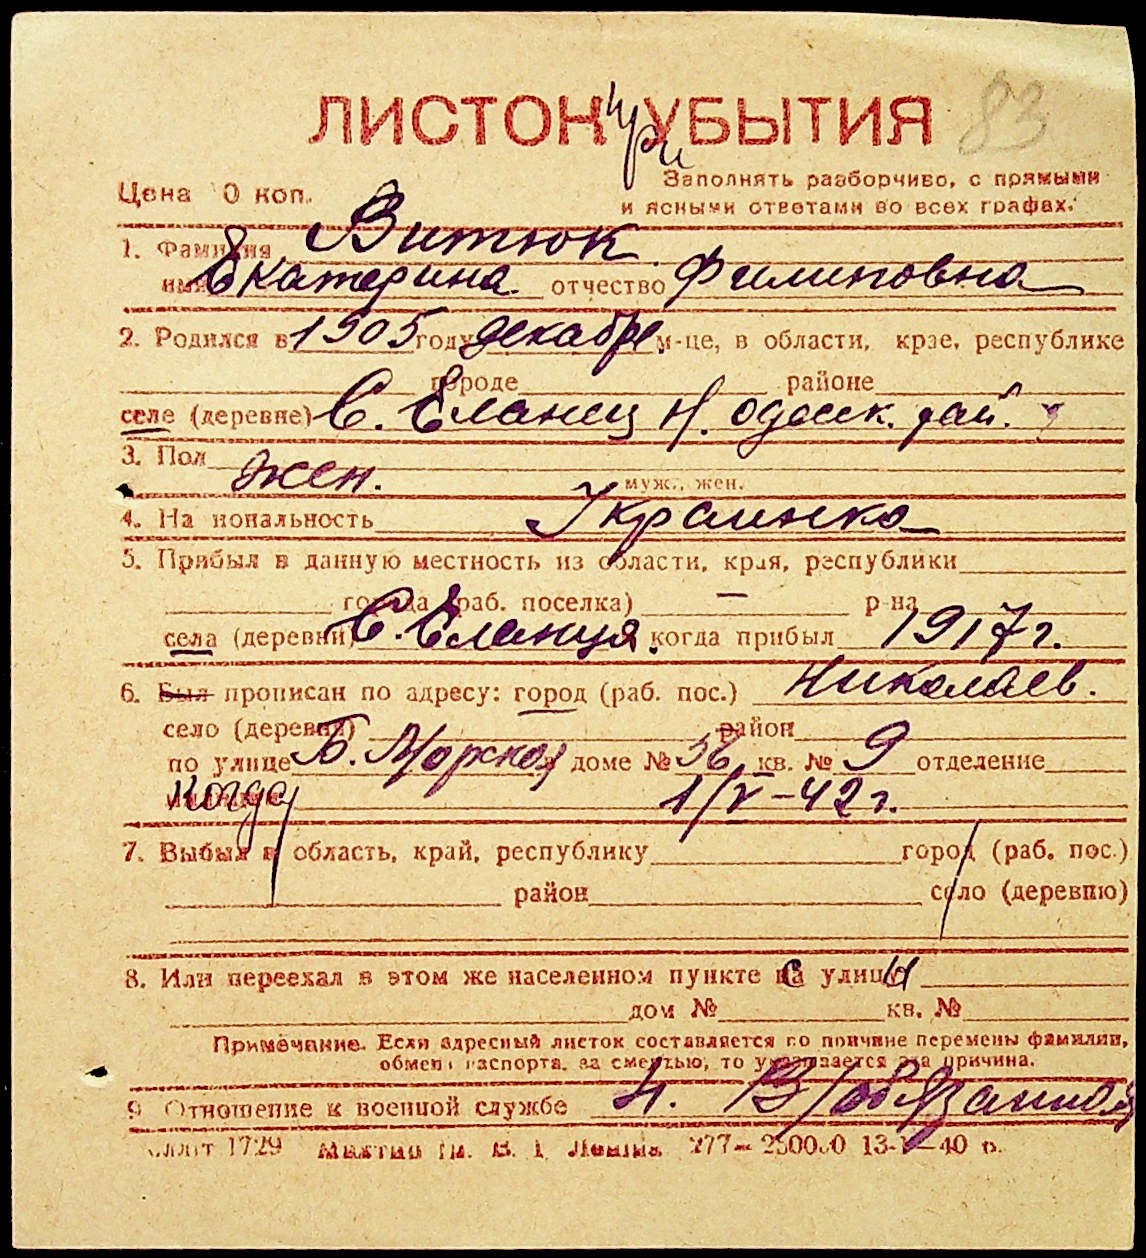 ЛИСТОК УБЫТИЯ
при
83
Заполнять разборчиво, с прямыми
Цена 0 коп.
и ясными ответами во всех графах.
1. Фамилия Витюк
имя Екатерина отчество Филиповна
2. Родился в 1905 году декабре м-це, в области, крае, республике
городе районе
селе (деревне) С. Еланец Н. одеск. рай.
3. Пол жен.
муж., жен.
4. Национальность Украинка
5. Прибыл в данную местность из области, края, республики
города (раб. поселка) — р-на
села (деревни) С. Еланця. когда прибыл 1917 г.
6. Был прописан по адресу: город (раб. пос.) Николаев.
село (деревня) район
по улице Б. Морской доме № 56 кв. № 9 отделение
Когда 1/V-42 г.
7. Выбыл в область, край, республику город (раб. пос.)
район село (деревню)
8. Или переехал в этом же населенном пункте с улицы
дом № кв. №
Примечание. Если адресный листок составляется по причине перемены фамилии,
обмена паспорта, за смертью, то указывается эта причина.
9 Отношение к военной службе Н. В/обязанной
1729 277— 13- —40 г.